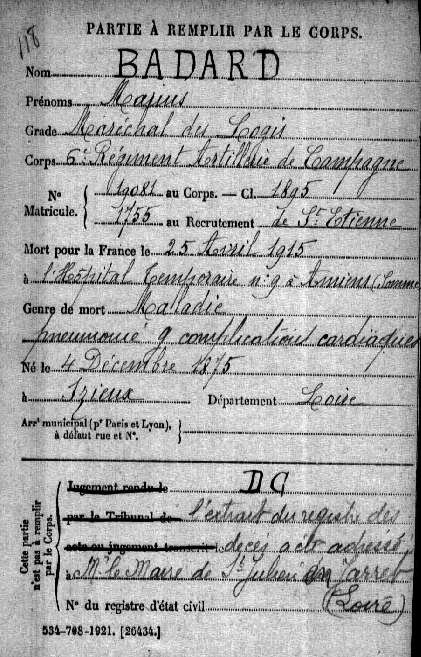 118
PARTIE À REMPLIR PAR LE CORPS.
Nom BADARD
Prénoms Majius
Grade Maréchal des Logis
Corps 6e Régiment Artillerie de Campagne
No Matricule. { 19081 au Corps. — Cl. 1895
1755 au Recrutement de St Etienne
Mort pour la France le 25 Avril 1915
à l'Hôpital Temporaire no 9 à Amiens (Somme
Genre de mort Maladie
pneumonie complications cardiaques
Né le 4 Décembre 1875
à Izieux Département Loire
Arrt municipal (pr Paris et Lyon), à défaut rue et No. }
Cette partie n'est pas à remplir par le Corps.
Jugement rendu le DC
par le Tribunal de l'extrait du registre des
acte ou jugement transcrit le décès a été adressé
à Mr le Maire de St Julien en Jarret
No du registre d'état civil (Loire)
534-708-1921. [26434.]